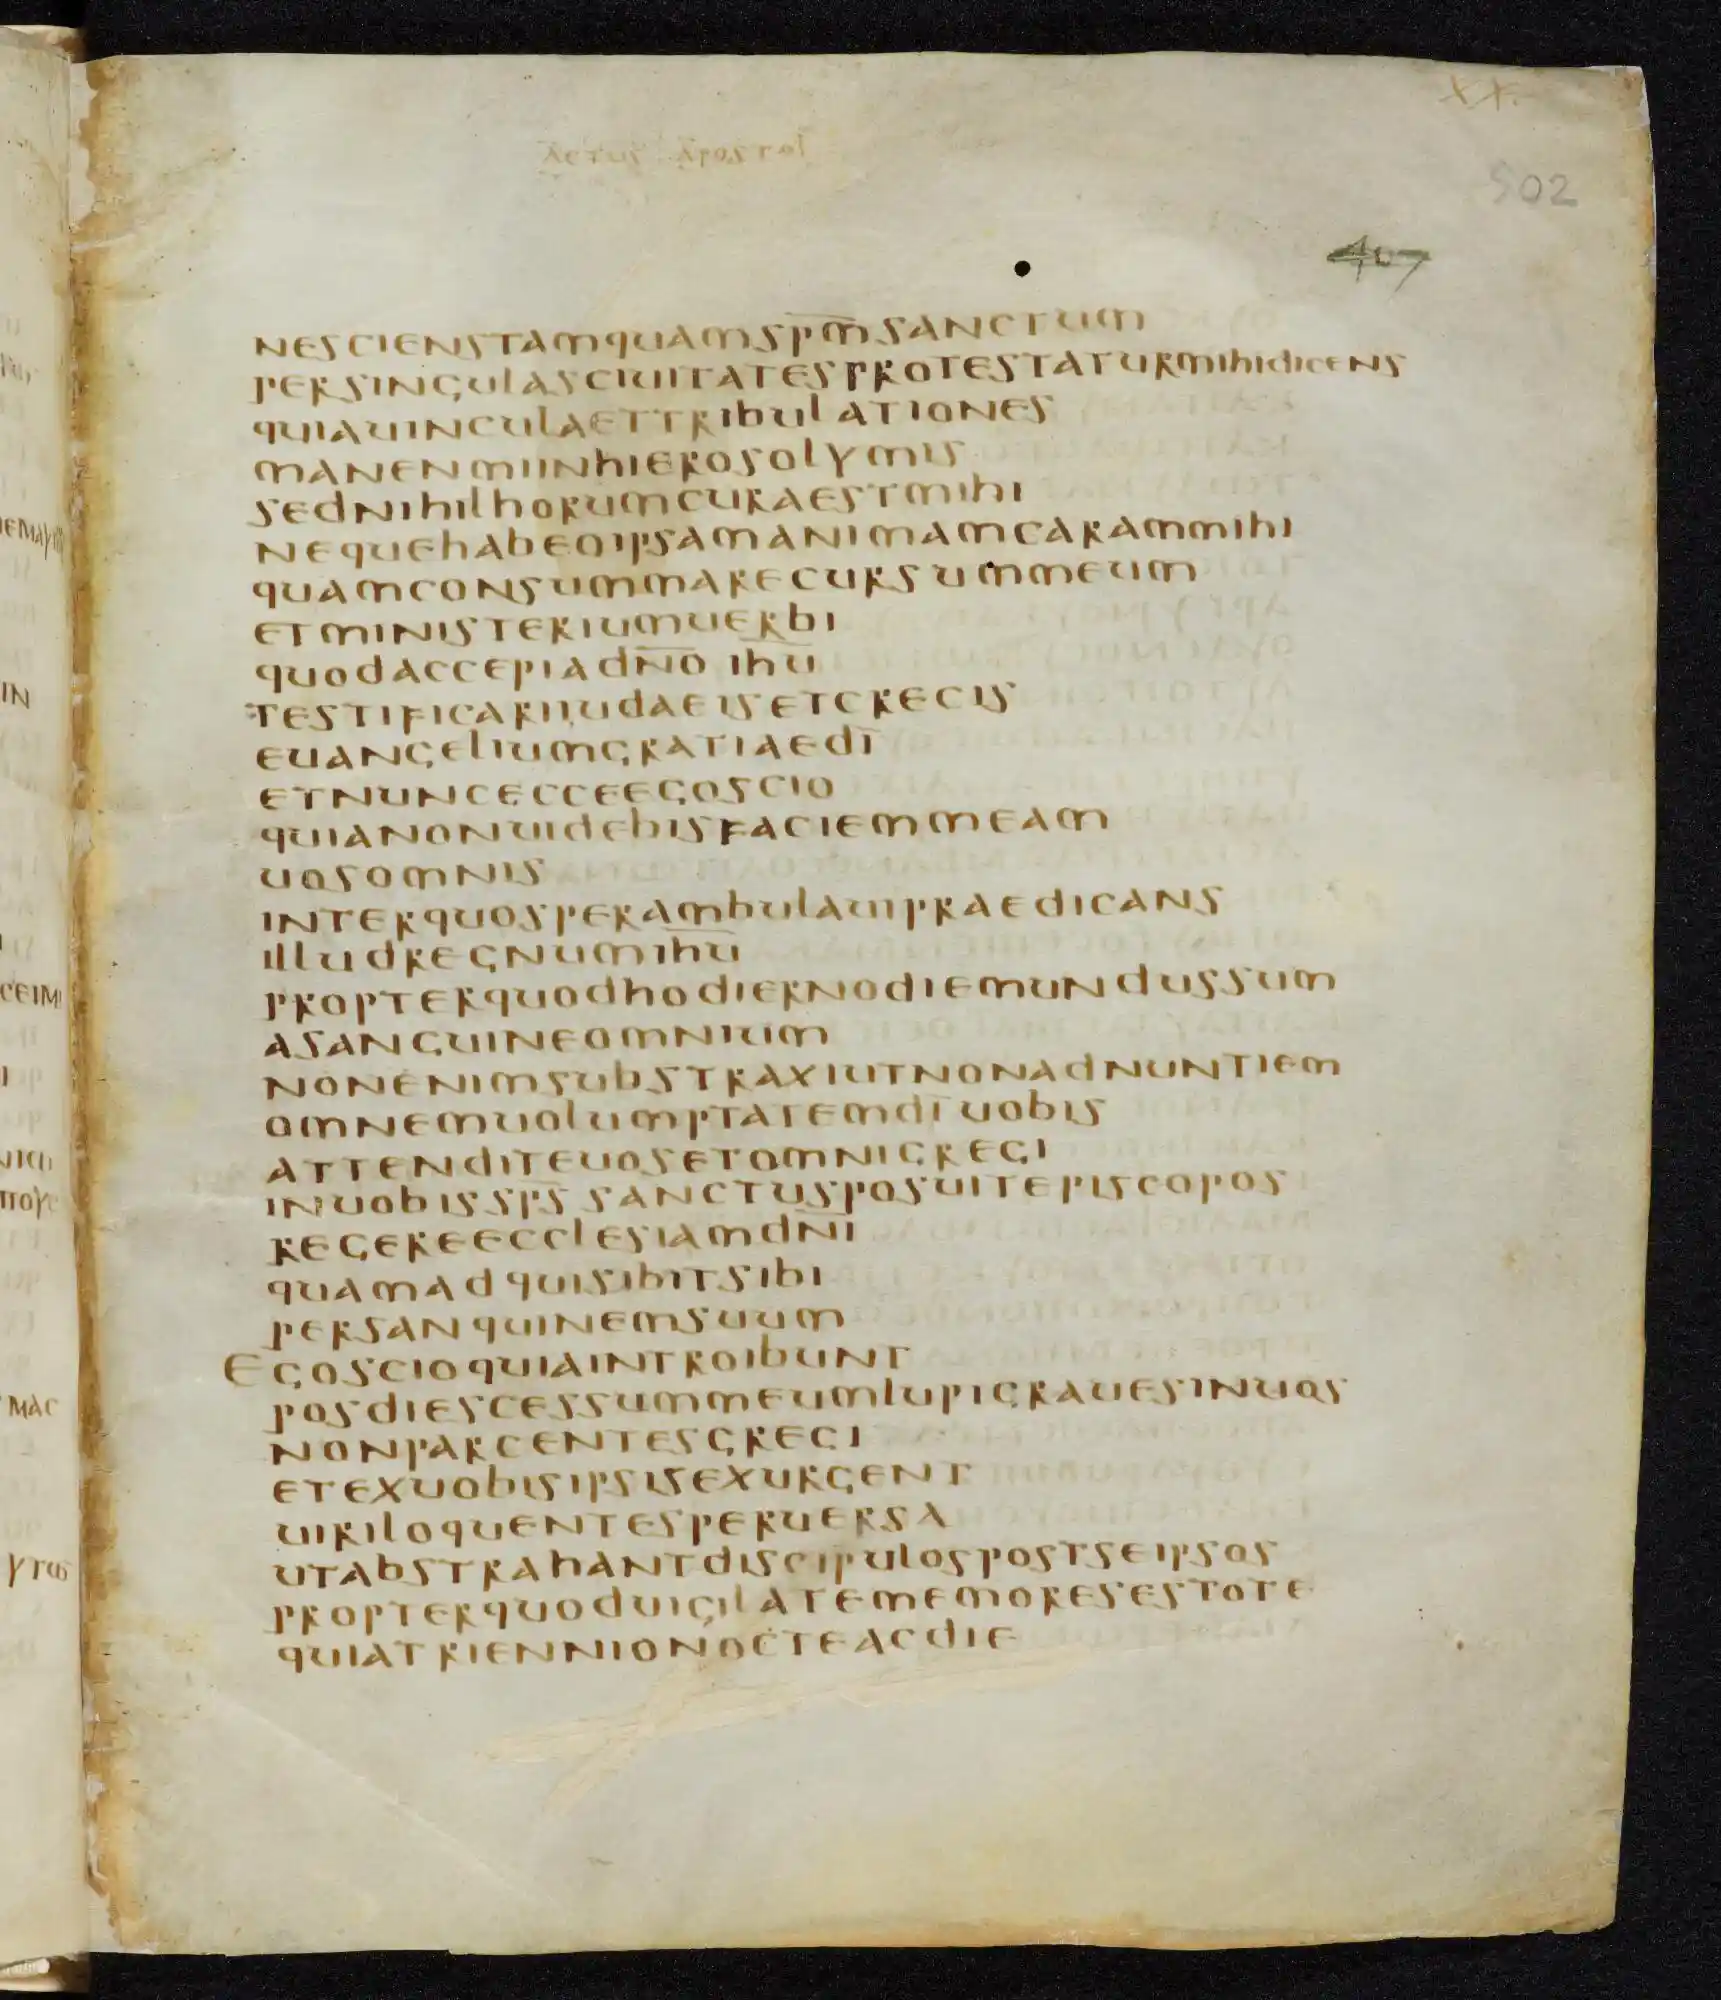 XX.
ACTUS APOSTOL
502
407
NESCIENSTAMQUAMSPM̅SANCTUM
PERSINGULASCIUITATESPROTESTATURMIHIDICENS
QUIAUINCULAETTRIBULATIONES
MANENMIINHIEROSOLYMIS
SEDNIHILHORUMCURAESTMIHI
NEQUEHABEOIPSAMANIMAMCARAMMIHI
QUAMCONSUMMARECURSUMMEUM
ETMINISTERIUMUERBI
QUODACCEPIADN̅O̅ IH̅U̅
TESTIFICARIIUDAEISETCRECIS
EUANGELIUMGRATIAEDI̅
ETNUNCECCEEGOSCIO
QUIANONUIDEBISFACIEMMEAM
UOSOMNIS
INTERQUOSPERAMBULAUIPRAEDICANS
ILLUDREGNUMIH̅U̅
PROPTERQUODHODIERNODIEMUNDUSSUM
ASANGUINEOMNIUM
NONENIMSUBSTRAXIUTNONADNUNTIEM
OMNEMUOLUMPTATEMDI̅ UOBIS
ATTENDITEUOSETOMNIGREGI
INUOBISSP̅S̅ SANCTUSPOSUITEPISCOPOS
REGEREECCLESIAMDN̅I̅
QUAMADQUISIBITSIBI
PERSANQUINEMSUUM
EGOSCIOQUIAINTROIBUNT
POSDIESCESSUMMEUMLUPIGRAUESINUOS
NONPARCENTESGREGI
ETEXUOBISIPSISEXURGENT
UIRILOQUENTESPERUERSA
UTABSTRAHANTDISCIPULOSPOSTSEIPSOS
PROPTERQUODUIGILATEMEMORESESTOTE
QUIATRIENNIONOCTEACDIE